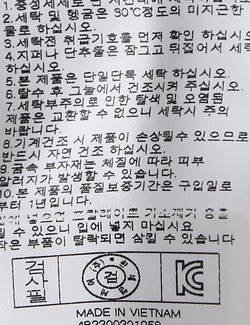 1.중성세제로
2.세탁 및 헹굼은 30℃정도의 미지근한
물로 하십시오.
3.세탁전 취급기호를 먼저 확인 하십시오
4.지퍼나 단추물은 잠그고 뒤집어서 세탁
하십시오.
5.본 제품은 단일단독 세탁 하십시오.
6.탈수 후 그늘에서 건조시켜 주십시오.
7.세탁부주의로 인한 탈색 및 오염된
제품은 교환할 수 없으니 세탁시 주의
바랍니다.
8.기계건조 시 제품이 손상될수 있으므로
반드시 자연 건조 하십시오.
9.금속 부자재는 체질에 따라 피부
알러지가 발생할 수 있습니다.
10.본 제품의 품질보증기간은 구입일로
부터 1년입니다.
될 수 있으니 입에 넣지 마십시요
작은 부품이 탈락되면 삼킬 수 있습니다
검사필 검 KC
MADE IN VIETNAM